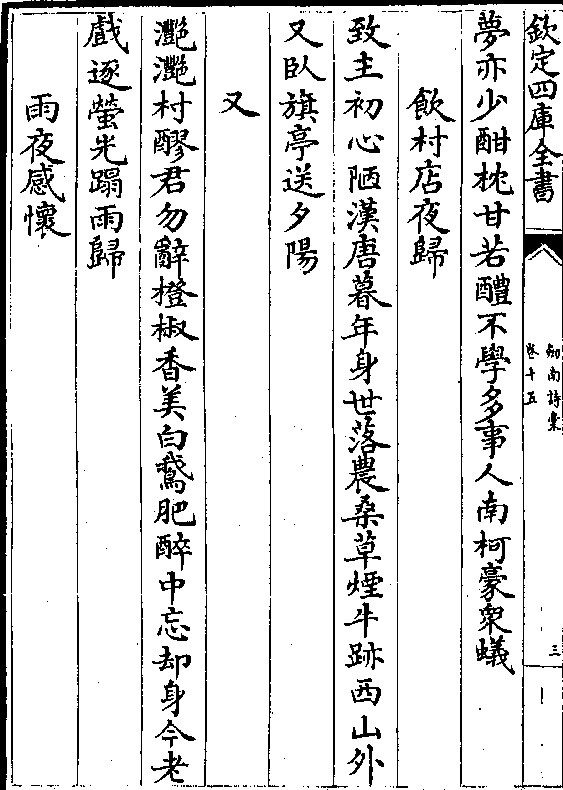 欽定四庫全書
劒南詩藁
卷十五
三
夢亦少酣枕甘若醴不學多事人南柯豪衆蟻
飲村店夜歸
致主初心陋漢唐暮年身世落農桑草煙牛跡西山外
又臥旗亭送夕陽
又
灧灧村醪君勿辭橙椒香美白鵞肥醉中忘却身今老
戲逐螢光蹋雨歸
雨夜感懷